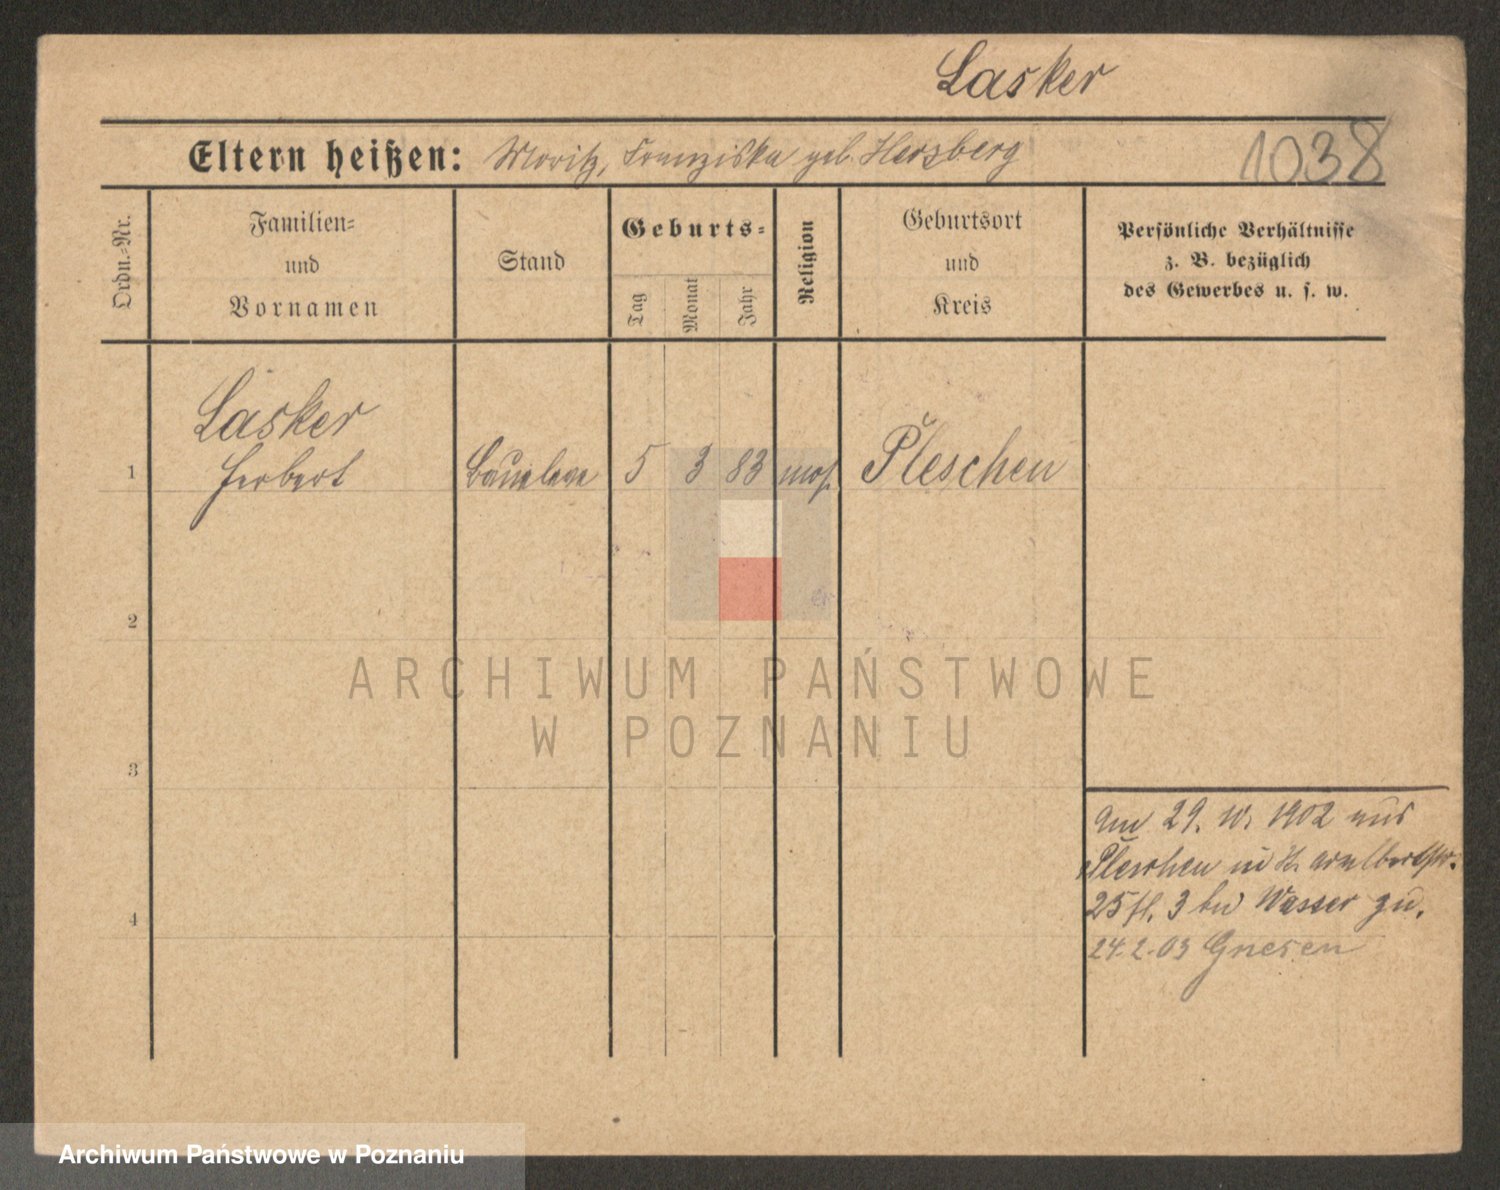 Lasker
Eltern heißen: Moritz, Franziska geb. Herzberg
1038
Ordn.-Nr.
Familien-
und
Vornamen
Stand
Geburts-
Tag
Monat
Jahr
Religion
Geburtsort
und
Kreis
Persönliche Verhältnisse
z. B. bezüglich
des Gewerbes u. s. w.
Lasker
1 Herbert Baueleve 5 3 83 mos. Pleschen
2
3
4
ARCHIWUM PAŃSTWOWE
W POZNANIU
Am 29. 10. 1902 aus
Pleschen
25 3 bei Wasser zu.
24.2.03 Gnesen
Archiwum Państwowe w Poznaniu